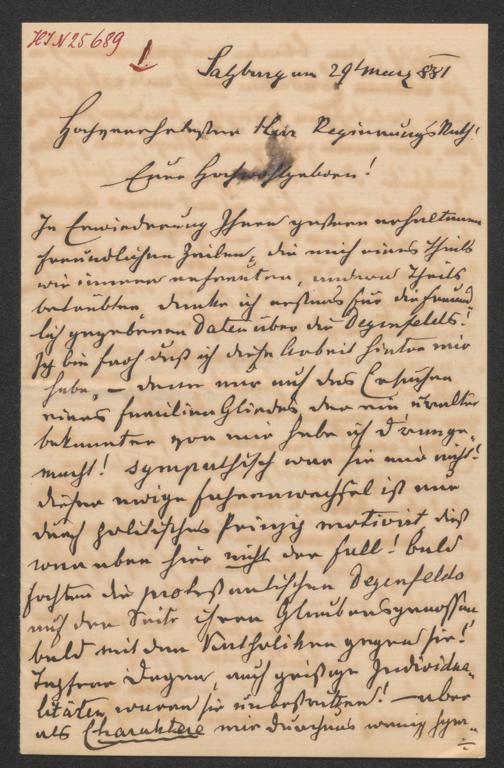 HIN 25689
1
Salzburg am 29t März 881
Hochverehrtester Herr RegierungsRath!
Euer Hochwohlgeboren!
In Erwiederung Ihrer gestern erhaltenen
freundlichen Zeilen, die mich eines Theils
wie immer erfreuten, andern Theils
betrübten, danke ich erstens für die freund
lich gegebenen Daten über die Degenfelds!
Ich bin froh daß ich diese Arbeit hinter mir
habe, – denn nur auf das Ersuchen
eines familien Gliedes der ein uralter
bekannter von mir habe ich d'range-
macht! sympathisch war sie mir nicht!
dieser ewige fahnenwechsel ist nur
durch politisches Prinzip motivirt dieß
war aber hier nicht der fall! bald
fochten die protestantischen Degenfelds
auf der Seite ihrer Glaubensgenossen
bald mit den Katholiken gegen sie!
Tapfere Degen, auch geistige Individua-
litäten waren sie unbestritten! – aber
als Charaktere mir durchaus wenig sym-